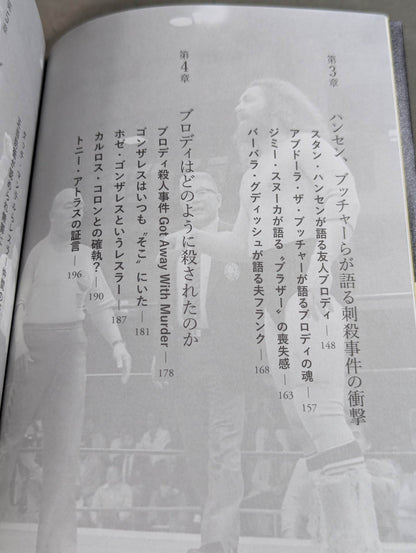 第3章
ハンセン、ブッチャーらが語る刺殺事件の衝撃
スタン・ハンセンが語る友人ブロディ — 148
アブドーラ・ザ・ブッチャーが語るブロディの魂 — 157
ジミー・スヌーカが語る〝ブラザー〟の喪失感 — 163
バーバラ・グディッシュが語る夫フランク — 168
第4章
ブロディはどのように殺されたのか
ブロディ殺人事件 Got Away With Murder — 178
ゴンザレスはいつも〝そこ〟にいた — 181
ホセ・ゴンザレスというレスラー — 187
カルロス・コロンとの確執？ — 190
トニー・アトラスの証言 — 196